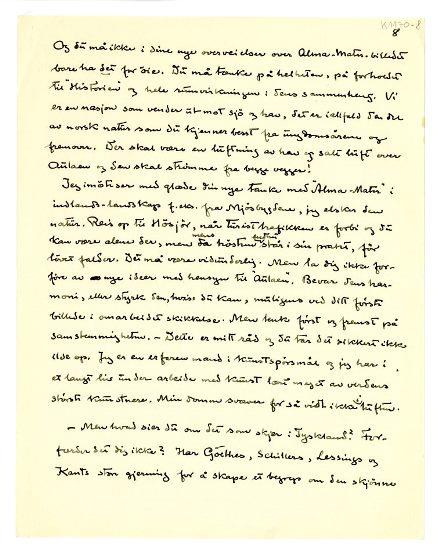 KM70-8
8
Og du må ikke i dine nye overveielser over Alma-Mater-billedet
bare ha det for öie. Du må tænke på helheten, på forholdet
til "Historien" og hele rumvirkningen i dens sammenheng. Vi
er en nasjon som vender ut mot sjö og hav, det er ialfeld den del
av norsk natur som du kjenner best fra ungdomsårene og
fremover. Der skal være en luftning av hav og salt luft over
Aulaen og den skal strömme fra begge vegger!
Jeg imöteser med glæde din nye tanke med "Alma-Mater" i
indlands-landskap f.eks. fra Mjösbygdene, jeg elsker den
natur. Reis op til Hösjör, når turisttrafikken er forbi og du
kan være alene der, men da hösten står i sin prakt, för
mens endnu
lövet falder. Du må være vidunderlig. Men la dig ikke for-
före av nye ideer med hensyn til "Aulaen". Bevar dens har-
moni, eller styrk den, hvis du kan, muligens ved ditt förste
billede i omarbeidet skikkelse. Men tenk först og fremst på
samstemmigheten. – Dette er mitt råd og du tar det sikkert ikke
ilde op. Jeg er en erfaren mand i kunstspörsmål og jeg har i
et langt liv under arbeide med kunst lært meget av verdens
störste kunstnere. Min domm svæver for så vidt ikke i luften.
– Men hvad sier du om det som skjer i Tyskland? For-
færder det dig ikke? Har Goethes, Schillers, Lessings og
Kants stor gjerning for å skape et begrep om den skjönne